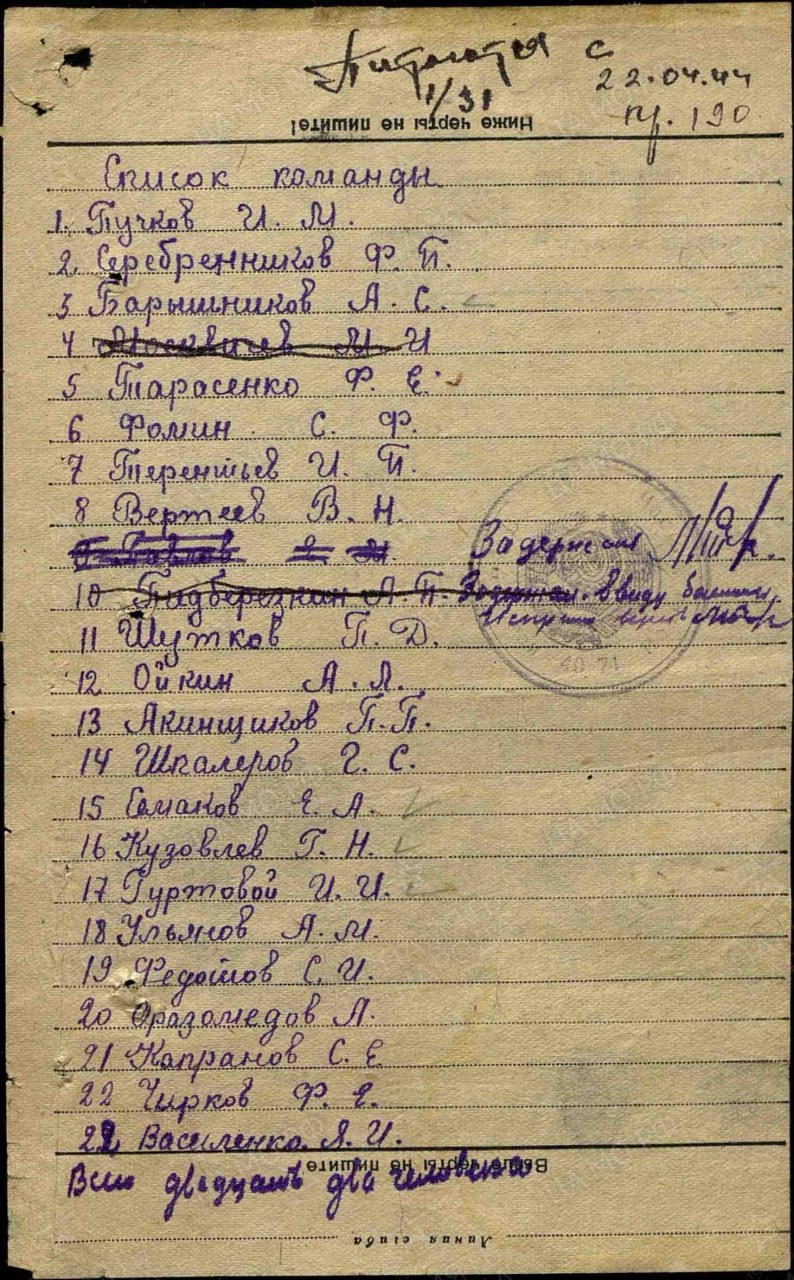 Питается с
22.04.44
1/31
пр. 190
Ниже черты не пишите!
Список команды
1. Пучков И. М.
2. Серебренников Ф. П.
3 Барышников А. С.
4 Москвичев М И
5 Тарасенко Ф. Е.
6 Фомин С. Ф.
7 Терентьев И. П.
8 Вертеев В. Н.
9 Павлов Задержан
10 Подберезкин А. П. Задержан. Ввиду
11 Шутков П. Д.
12 Ойкин А. Л.
13 Акинщиков П. П.
14 Шкалеров Г. С.
15 Ермаков Е. А.
16 Кузовлев Г. Н.
17 Гуртовой И. И.
18 Ульянов А. М.
19 Федотов С. И.
20 Оразомедов А.
21 Капранов С. Е
22 Чирков Ф. Е.
22 Василенко А. И.
Выше черты не пишите
Всего двадцать два человека
Линия сгиба